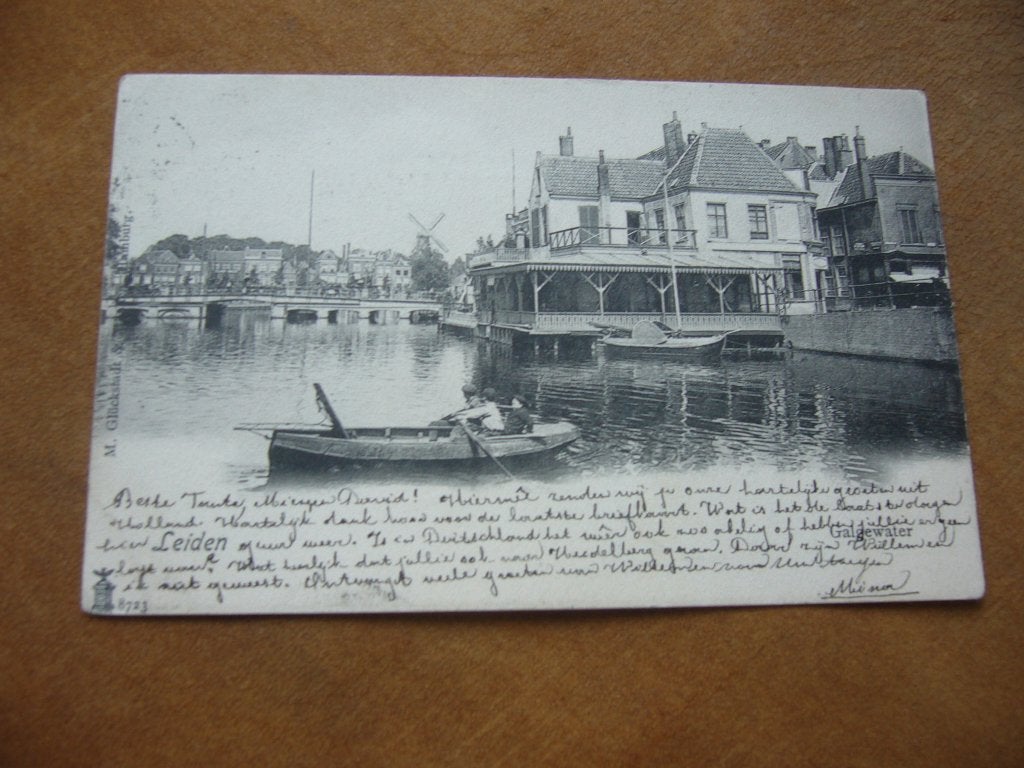 M. Glückstadt & Hamburg.
Beste Tante, Miesje David! Hiermee zenden wij je onze hartelijke groeten uit
Holland. Hartelijk dank hoor voor de laatste briefkaart. Wat is het de laatste dagen
hier guur weer. Is in Duitschland het weer ook zoo akelig of hebben jullie er geen
Leiden
Galgewater
last van? Wat heerlijk dat jullie ook naar Heidelberg gaan. Daar zijn Willem en
ik niet geweest. Ontvangt vele groeten van Willem en van
8723